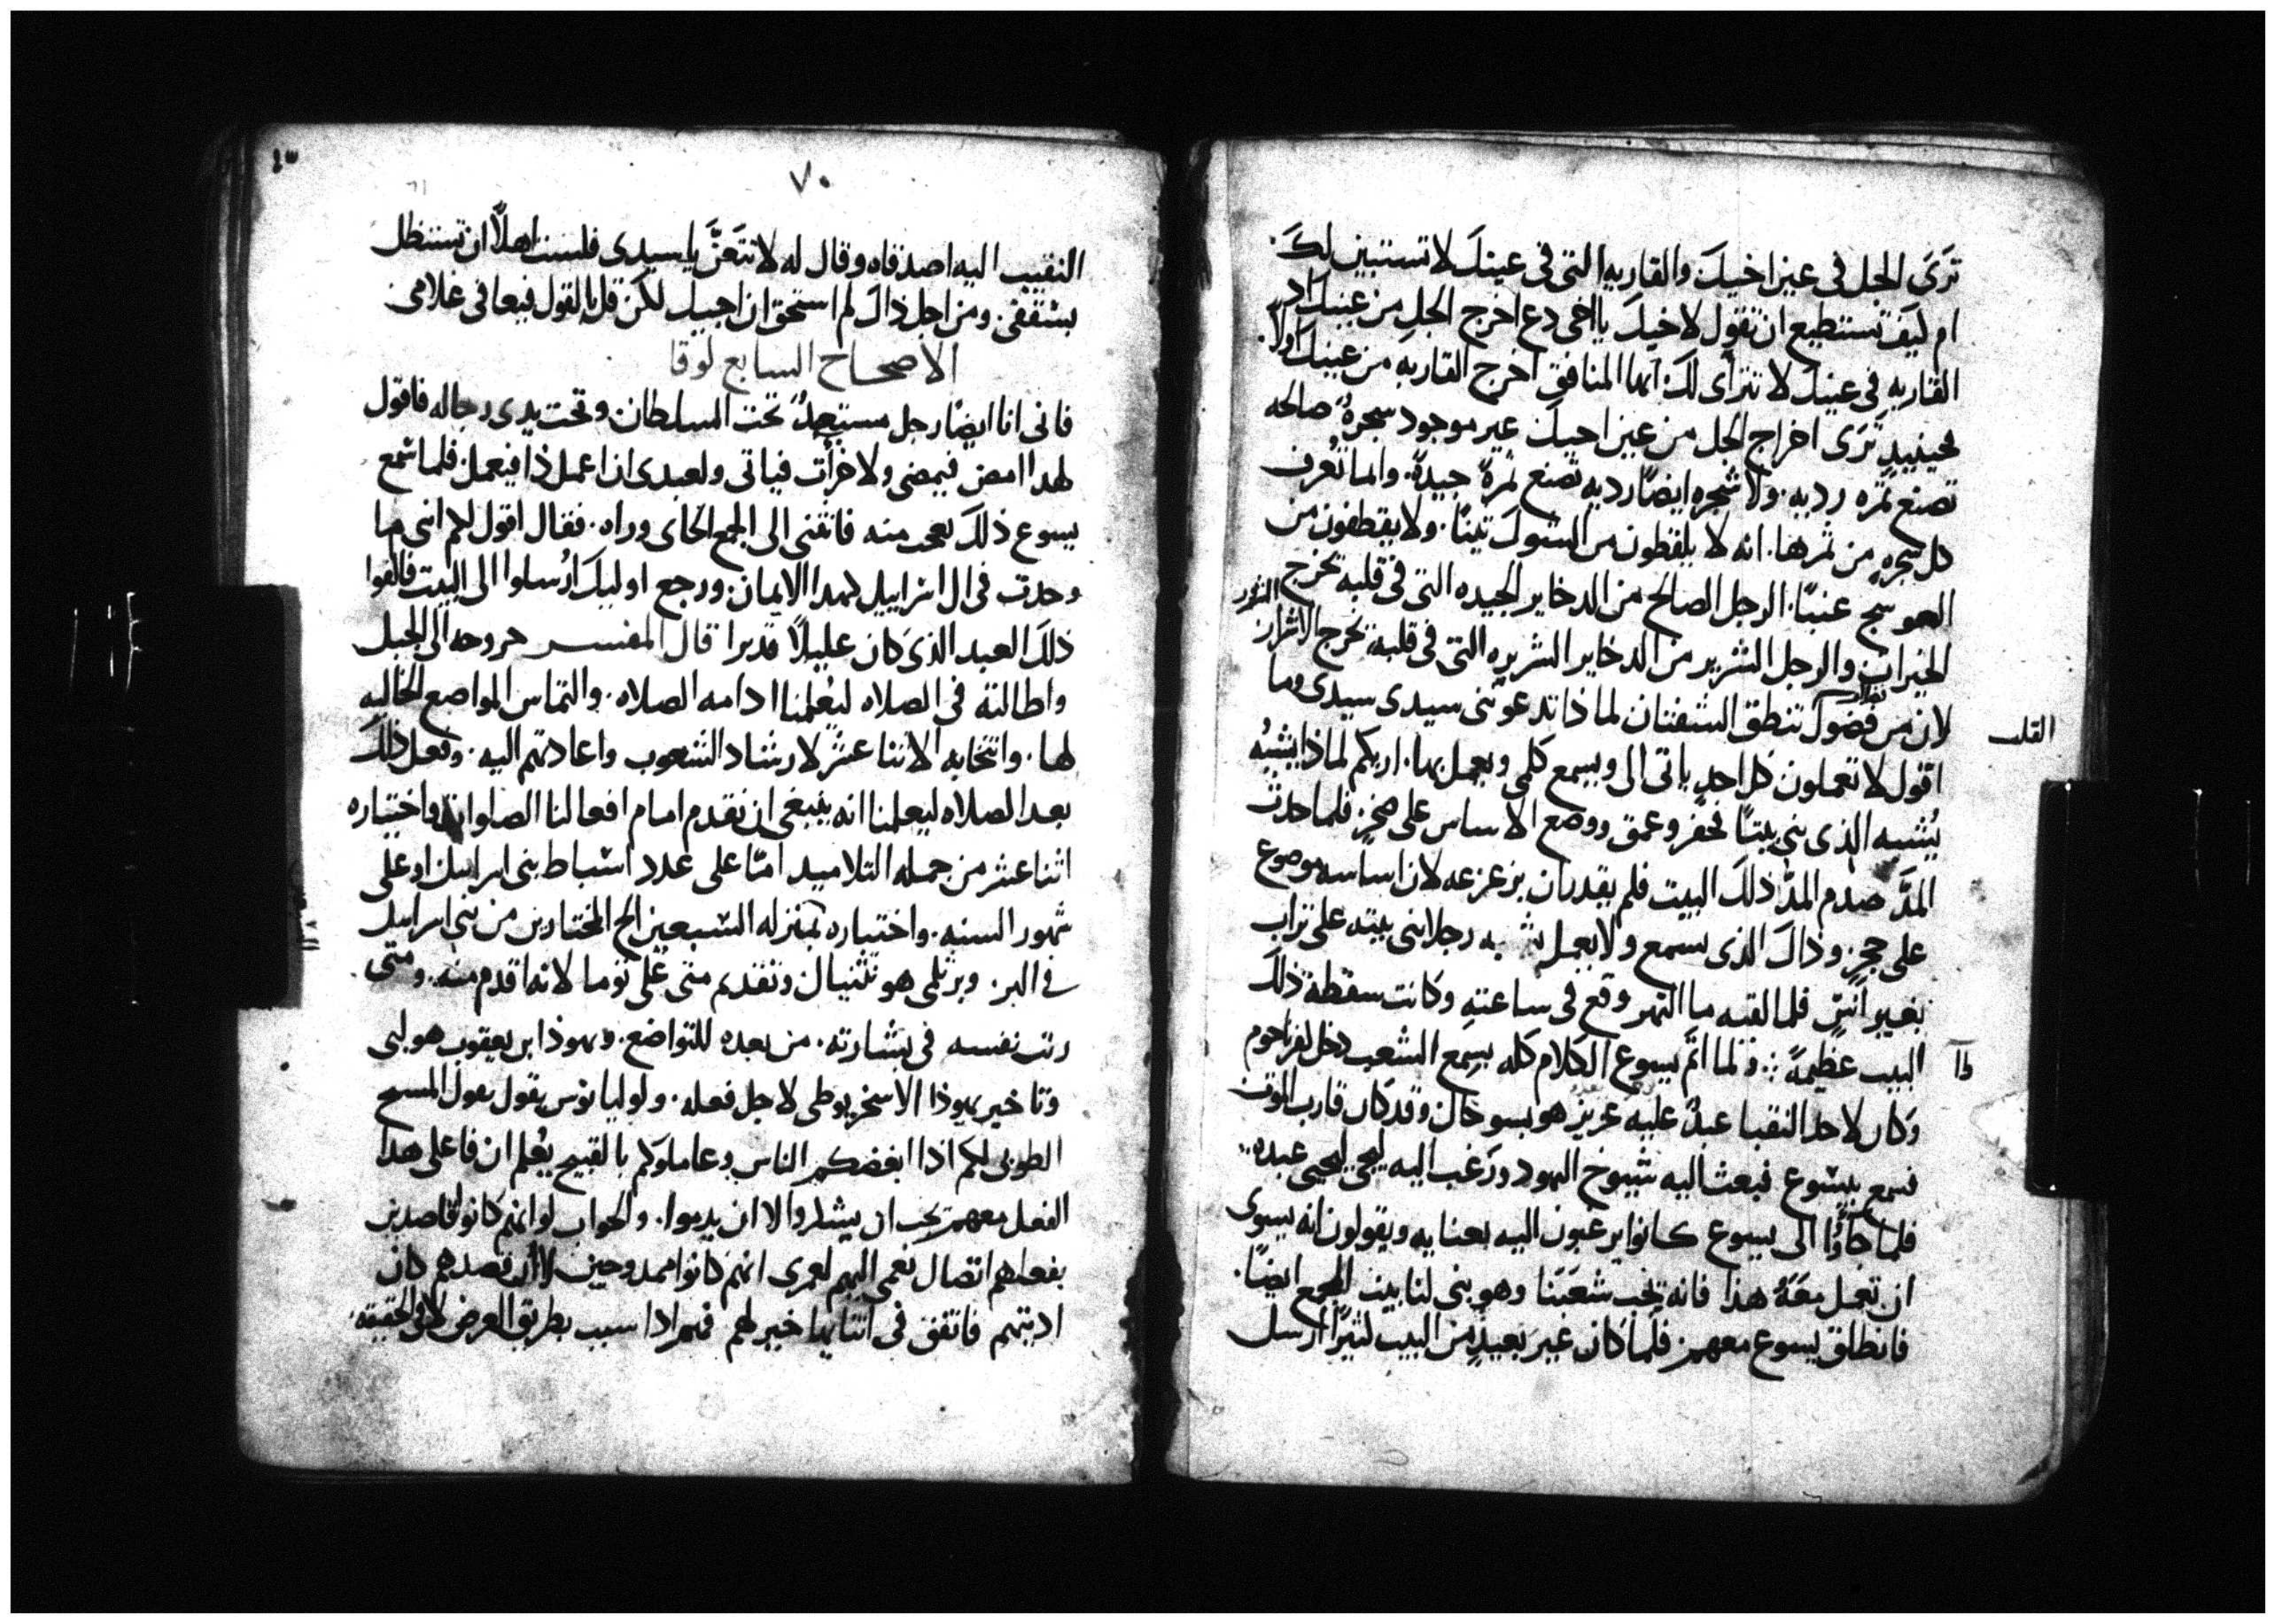 ترَى الجل فى عين اخيكَ والقاريه التى فى عينكَ لا تستبين لكَ.
ام ليف تستطيع ان تقول لاخيكَ يا اخى دع اخرج الجل من عينيك اد
القاريهِ فى عينكَ لا تترأى لكَ. ايها المنافق اخرج القاريهِ من عينيكَ اولًا.
فحينيدٍ ترَى اخراج الجل من عين اخيكَ غير موجود سجرهٌ صالحه
تصنع ثمره رديه. ولا شجره ايضًا رديه تصنع ثمرهً جيدهً. وانما تُعرف
كل سجرهٍ من ثمرها. انه لا يلقطون من الشوكَ تينًا. ولا يقطفون من
العوسج عنبًا. الرجل الصالح من الدخاير الجيده التى فى قلبه تخرج
الخيرات والرجل الشرير من الدخاير الشريره التى فى قلبه تخرج الاشرار الشرور
لان من فضول تنطق الشفتان لماذا تدعوننى سيدى سيدى وما
القلب
اقول لا تعملون كل احدٍ ياتى الى ويسمع كلمى ويعمل بها. اريكم لماذا يشبهُ
يُشبه الذى بنى بيتًا فحفر وعمق ووضع الاساس على صخرٍ فلما حدث
المدَّ صدم المدَّ ذلكَ البيت فلم يقدر ان يزعزعه لان اساسه موضوع
على حجرٍ. وذاكَ الذى يسمع ولا يعمل يشبه رجلا بنى بيته على تراب
بغير اسٍّ فلما لقيه ما النهر وقع فى ساعتهِ وكانت سقطة ذلكَ
البيت عظيمهً. ولما اتمَّ يسوع الكلام كله بسمع الشعب دخل لفرناحوم
وكان لاحد النقبا عبدٌ عليه عزيز هو بسو حال وقد كان قارب الموت
فسمع بيسوع فبعث اليه شيوخ اليهود ورغب اليه ليجى ليحيى عبده.
فلما جاوُا الى يسوع كانوا يرغبون اليه بعنايه ويقولون انه يسوى
ان تعمل معَهُ هذا فانه يحب شعبَنا وهو بنى لنا بيت المجمع ايضًا.
فانطلق يسوع معهم. فلما كان غير بعيدٍ من البيت لثيرًا ارسل
٧٠
النقيب اليه اصدقاه وقال له لا تتعَنَّ يا سيدى فلست اهلًا ان تستظل
بسقفى. ومن اجل ذاكَ لم استحق ان اجييك لكن قل بالقول فيعافى غلامى
الاصحاح السابع لوقا
فانى انا ايضًا رجل مستعبدٌ تحت السلطان وتحت يدى رجاله فاقول
لهدا امض فيمضى ولاخر ات فياتى ولعبدى ان اعمل ذا فيعمل فلما سمع
يسوع ذلكَ تعجب منه فانثنى الى الجمع الجاى وراه. فقال اقول لكم اننى ما
وجدت فى ال اسراييل لهدا الايمان ورجع اوليكَ ارُسلوا الى البيت فالفوا
ذلكَ العبد الذى كان عليلًا قد برا قال المفسر خروجه الى الجبل
واطالته فى الصلاه ليُعلمنا ادامه الصلاه. والتماس المواضع الخاليه
لها. وانتخابه الاثنا عشر لارشاد الشعوب واعادتهم اليه. وفعل ذلكَ
بعد الصلاه ليعلمنا انه ينبغى ان نقدم امام افعالنا الصلوات واختياره
اثنا عشر من جمله التلاميد امّا على عدد اسباط بنى اسراييل او على
شهور السنه. واختياره بمنزله السبعين الح المختارين من بنى اسراييل
فى البر. وبرثلمى هو نثنيال وتقديم متى على توما لانه اقدم منه. ومتى
رتب نفسه فى بشارته. من بعده للتواضع. ويهوذا ابن يعقوب هو لبى
وتاخير يهوذا الاسخريوطى لاجل فعله. ولوليانوس يقول يقول المسيح
الطوبى لكم اذا ابغضكم الناس وعاملوكم بالقبيح يعُلم ان فاعلى هدا
الفعل معهم يجب ان يشكروا لا ان يدموا. والجواب لو انهم كانوا قاصدين
بفعلهم اتصال نعمى اليهم لعمرى انهم كانوا ممدوحين لا ان قصدهم كان
اديتهم فاتفق فى اثنايها خير لهم فهم اذا سبب بطريق العرض لا فى الحقيقه.